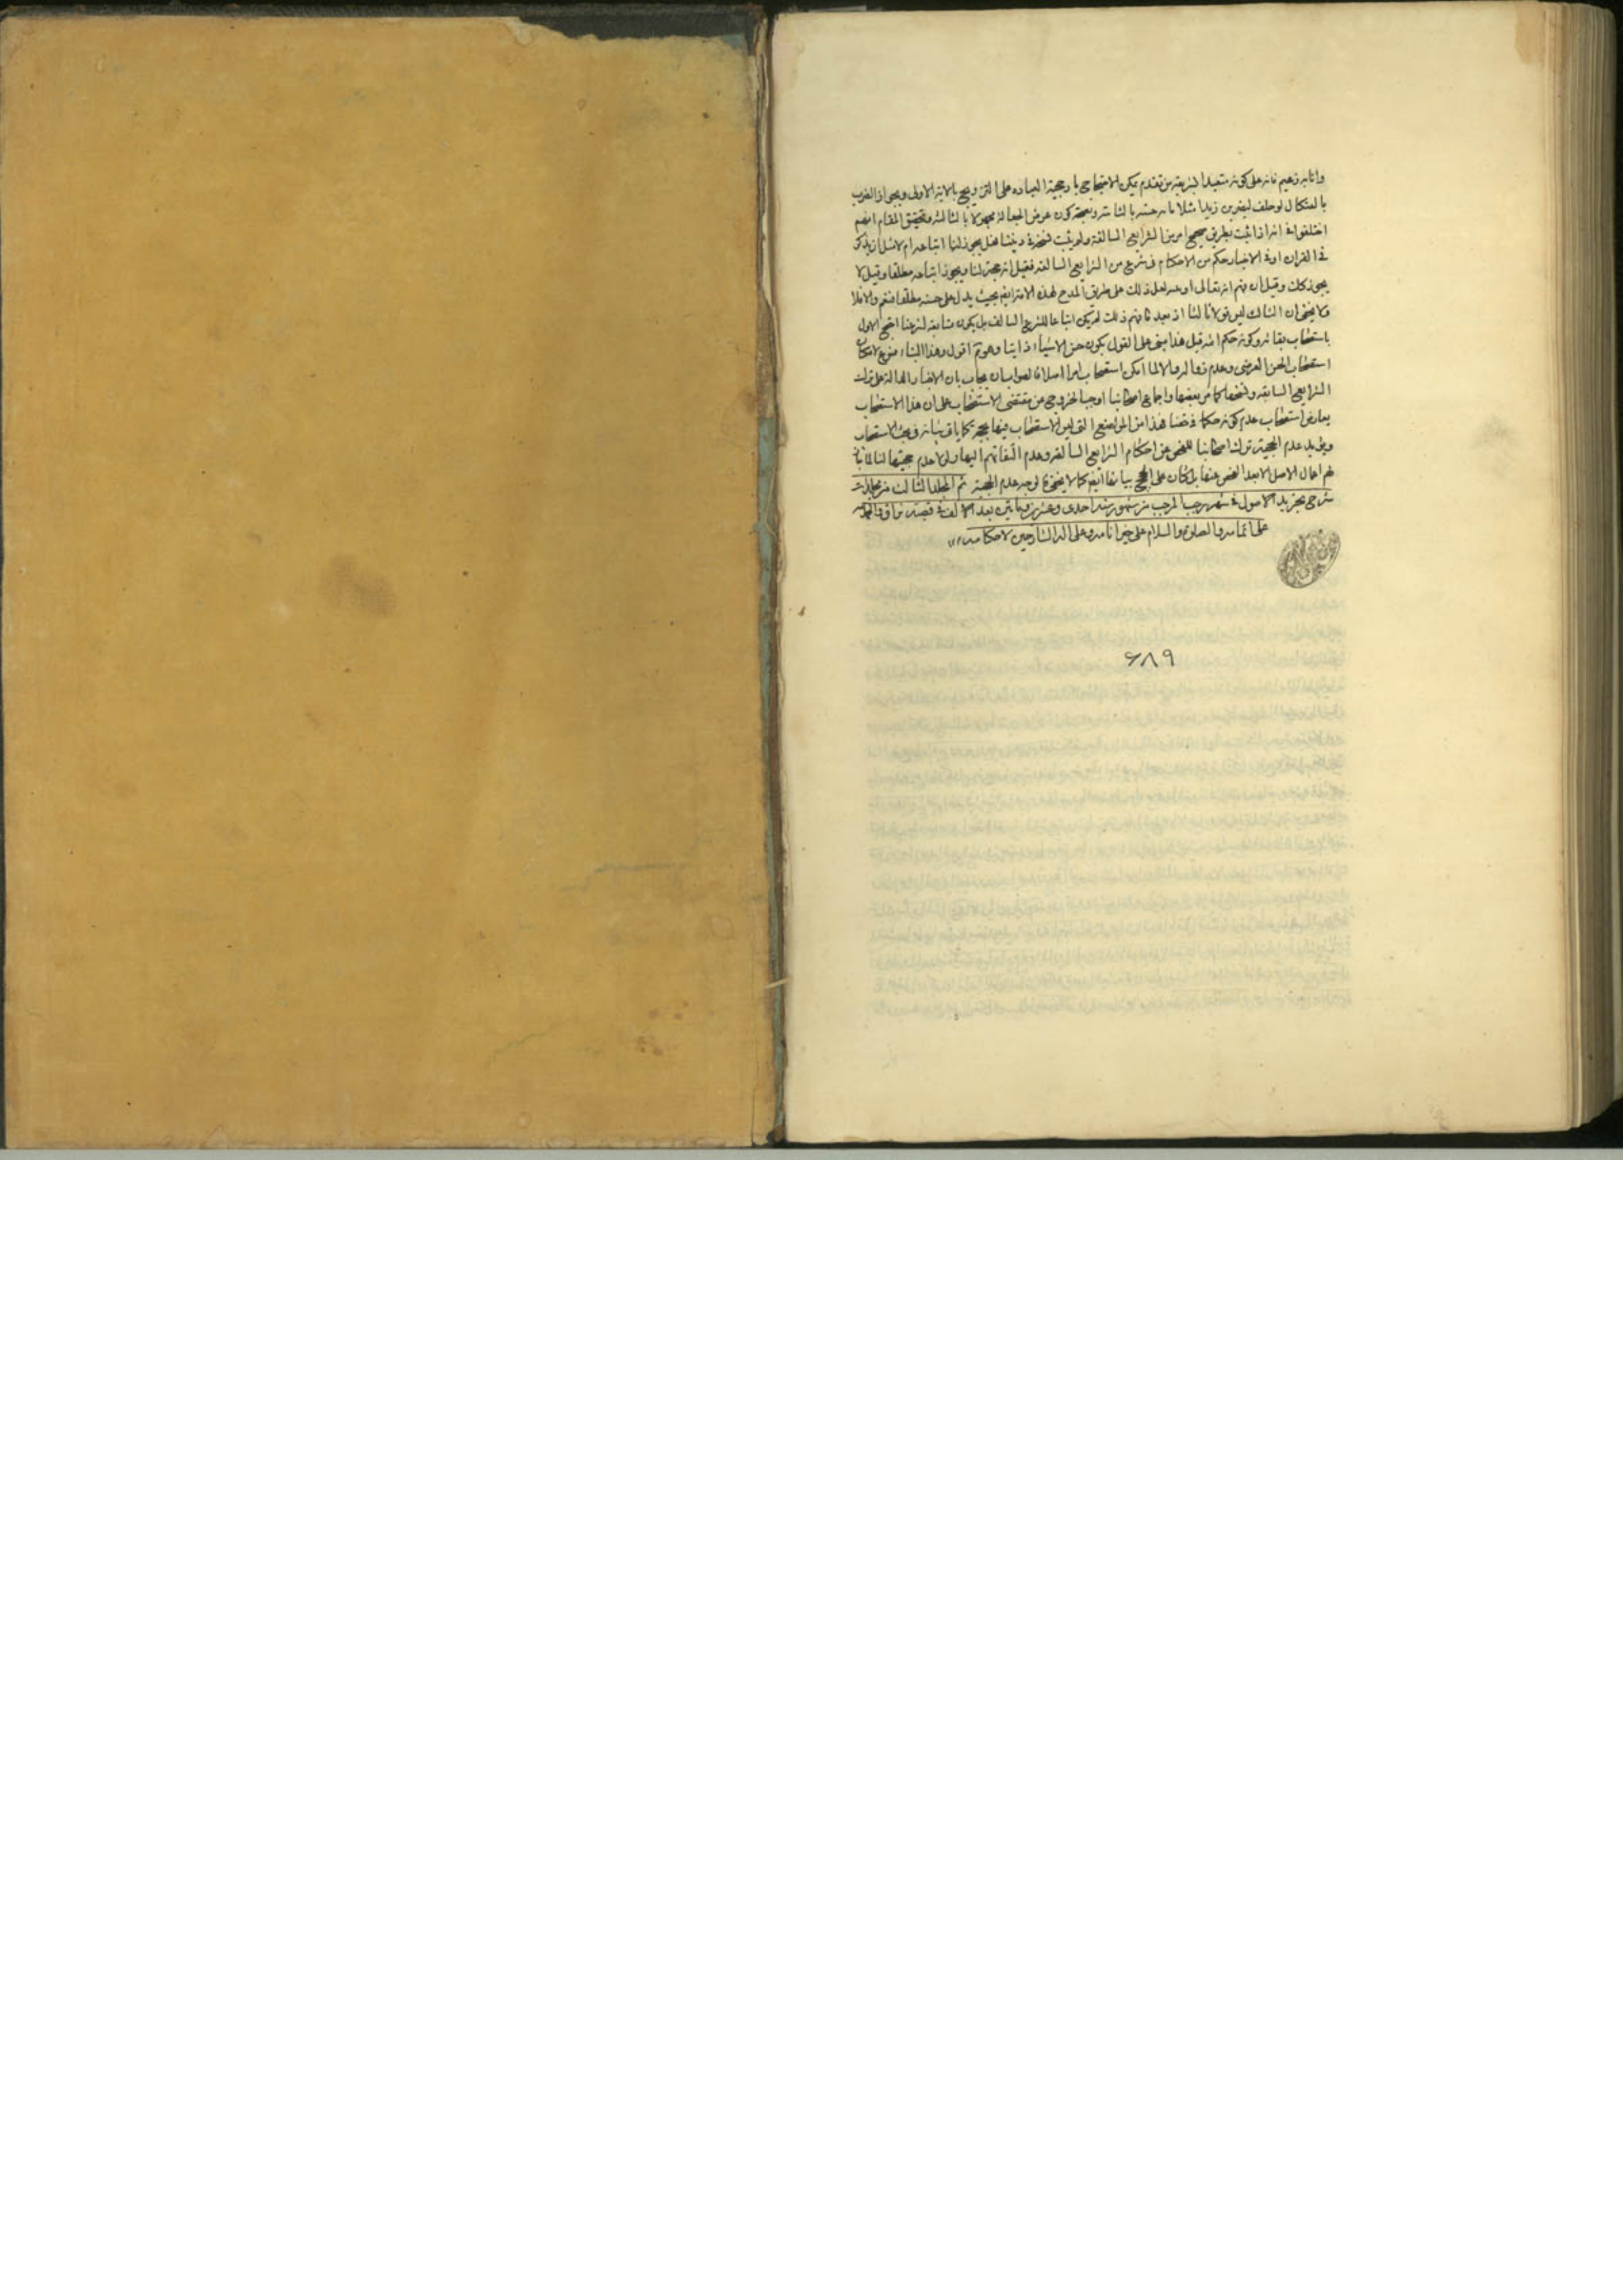 وانا به زعيم فانه على كونه متعبدا بشريعة من تقدم يمكن الاحتجاج بارجحية العبادة على التزويج بالاية الاولى وبجواز الضرب
بالعثكال لو حلف ليضربن زيدا مثلا مائة خشبة بالثانية وبصحة كون عوض الجعالة مجهولا بالثالثة وتحقيق المقام انهم
اختلفوا في انه اذا ثبت بطريق صحيح امر من الشرايع السالفة ولم يثبت نسخه في ديننا فهل يجوز لنا اتباعه ام لا مثل ان يذكر
في القران او في الاخبار حكم من الاحكام في شرع من الشرايع السالفة فقيل انه حجة لنا ويجوز اتباعه مطلقا وقيل لا
يجوز كك وقيل ان فهم انه تعالى او نقل ذلك على طريق المدح لهذه الامة ايضا بحيث يدل على حسنه مطلقا فنعم والا فلا
ولا يخفى ان الثالث ليس قولا ثالثا اذ بعد ما فهم ذلك لم يكن اتباعا للشرع السالف بل يكون متابعة لشرعنا احتج الاول
باستصحاب بقائه وكونه حكم الله قيل هذا مبني على القول بكون حسن الاشياء ذاتيا وهو تم اقول وهذا البناء ممنوع لامكان
استصحاب الحسن العرضي وعدم زواله والا لما امكن استصحاب امر اصلا فالصواب ان يجاب بان الاخبار الدالة على ترك
الشرايع السابقة ونسخها كما مر بعضها واجماع اصحابنا اوجبا الخروج عن مقتضى الاستصحاب على ان هذا الاستصحاب
يعارض استصحاب عدم كونه حكما في حقنا فهذا من المواضع التي ليس الاستصحاب فيها بحجة كما ياتي بيانه في بحث الاستصحاب
ويؤيد عدم الحجية ترك اصحابنا للفحص عن احكام الشرايع السالفة وعدم التفاتهم اليها ولولا عدم حجيتها لنا لما جاز
لهم اعمال الاصل الا بعد الفحص عنها كما لا يخفى لوجه عدم الحجية تم المجلد الثالث من مجلدات
شرح تجريد الاصول في شهر رجب المرجب من شهور سنة احدى وعشرين ومأتين بعد الالف في قصبة نراق والحمد لله
على اتمامه والصلوة والسلام على خير انامه وعلى اله الشارحين لاحكامه
۶۸۹